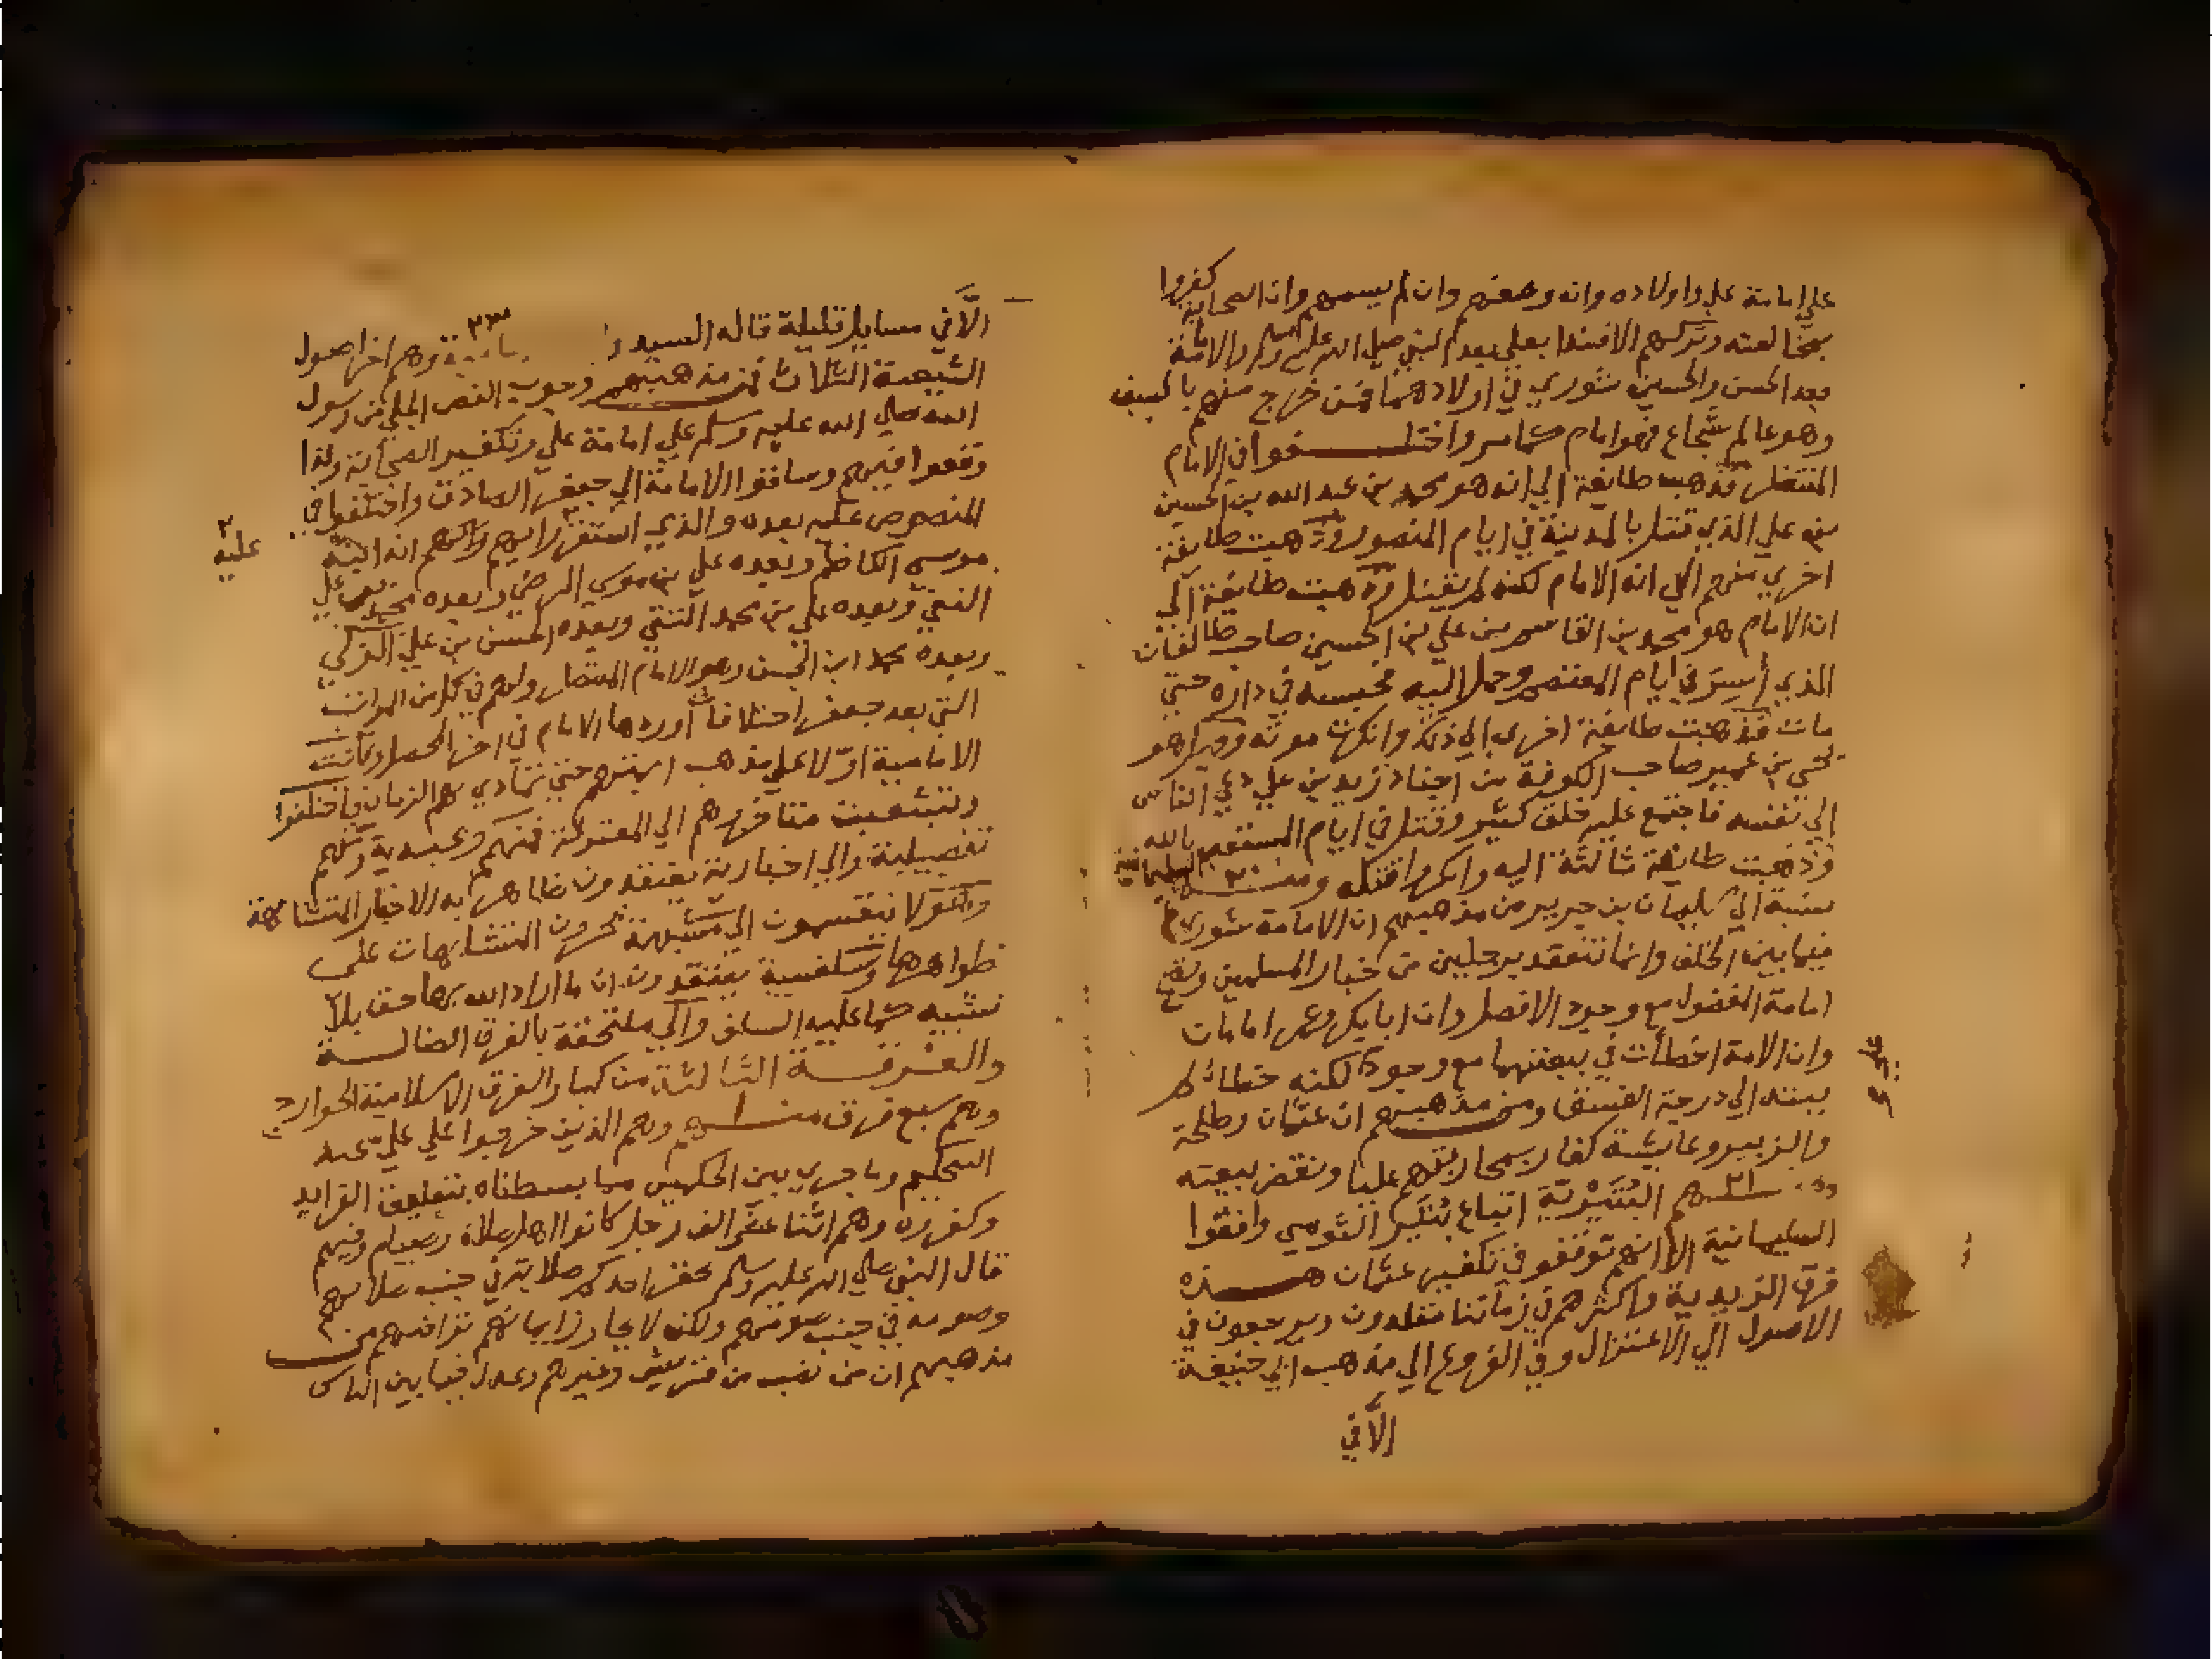 علي امامة علي واولاده وانه وصفهم وان لم يسمهم وان الصحابة كفروا
بمخالفته وتركهم الاقتدا بعلي بعد النبي صلي الله عليه وسلم والامامة
بعد الحسن والحسين شوري في اولادهما فمن خرج منهم بالسيف
وهو عالم شجاع فهو امام كما مر واختلفوا في الامام
المنتظر فذهبت طايفة الي انه هو محمد بن عبد الله بن الحسين
بن علي الذي قتل بالمدينة في ايام المنصور وذهبت طايفة
اخري منهم الي انه الامام لكنه لم يقتل وذهبت طايفة الي
ان الامام هو محمد بن القاسم بن علي بن الحسين صاحب طالقان
الذي أسر في ايام المعتصم وحمل اليه فحبسه في داره حتي
مات فذهبت طايفة اخري الي ذلك وانكرت موته وقيل هو
يحيى بن عمير صاحب الكوفة من احفاد زيد بن علي دعي الناس
الي نفسه فاجتمع عليه خلق كثير وقتل في ايام المستعين بالله
وذهبت طايفة ثالثة اليه وانكروا قتله ومنهم السليمانية
نسبة الي سليمان بن جرير من مذهبهم ان الامامة شوري
فيما بين الخلف وانما تنعقد برجلين من خيار المسلمين وتصح
امامة المفضول مع وجود الافضل وان ابا بكر وعمر امامان
وان الامة اخطأت في بيعتهما مع وجود لكنه خطأ لم
ينته الي درجة الفسق ومن مذهبهم ان عثمان وطلحة
والزبير وعايشة كفار بمحاربتهم عليا ونقض بيعته
ومنهم البُتَيْرِيّة اتباع بُتَير الثومي وافقوا
السليمانية الا انهم توقفو في تكفير عثمان هذه
فرق الزيدية واكثرهم في زماننا مقلدون ويرجعون في
الاصول الي الاعتزال وفي الفروع الي مذهب ابي حنيفة
الَّا في
الَّا في مسايل قليلة قاله السيد وهم اخر اصول
٢٣
الشيعة الثلاث فمن مذهبهم وجوب النص الجلي من رسول
الله صلي الله عليه وسلم علي امامة علي وتكفير الصحابة ولذا
وقعوا فيهم وساقوا الامامة الي جعفر الصادق واختلفوا في
المنصوص عليه بعده والذي استقر رايهم انه ابنه
عليه
موسي الكاظم وبعده علي بن موسي الرضي وبعده محمد بن علي
النقي وبعده علي بن محمد التقي وبعده الحسن بن علي الزكي
وبعده محمد ابن الحسن وهو الامام المنتظر ولهم في كل من المراتب
التي بعد جعفر اختلافات أوردها الامام في اخر المحصل وكانت
الامامية اولا علي مذهب ايمتهم حتي تمادي بهم الزمان فاختلفوا
وتشعبت متاخروهم الي المعتزلة فمنهم وعيدية ومنهم
تفضيلية والي اخبارية يعتقدون ظاهر به الاخبار المتشابهة
وهولا ينقسمون الي مشبهة يجرون المتشابهات على
ظواهرها وسلفية يعتقدون ان ما اراد الله بها حق بلا
تشبيه كما عليه السلف والي ملتحقة بالفرق الضالة
والفرقة الثالثة من كبار الفرق الاسلامية الخوارج
وهم سبع فرق منهم وهم الذين خرجوا علي عليّ عند
التحكيم وما جري بين الحكمين مما بسطناه بتعليق الفرايد
وكفروه وهم اثنا عشر الف رجل كانوا اهل صلاة وصيام وفيهم
قال النبي صلي الله عليه وسلم يحقر احدكم صلاته في جنب صلاتهم
وصومه في جنب صومهم ولكن لا يجاوز ايمانهم تراقيهم من
مذهبهم ان من نصب من قريش وغيرهم وعدل فيما بين الناس